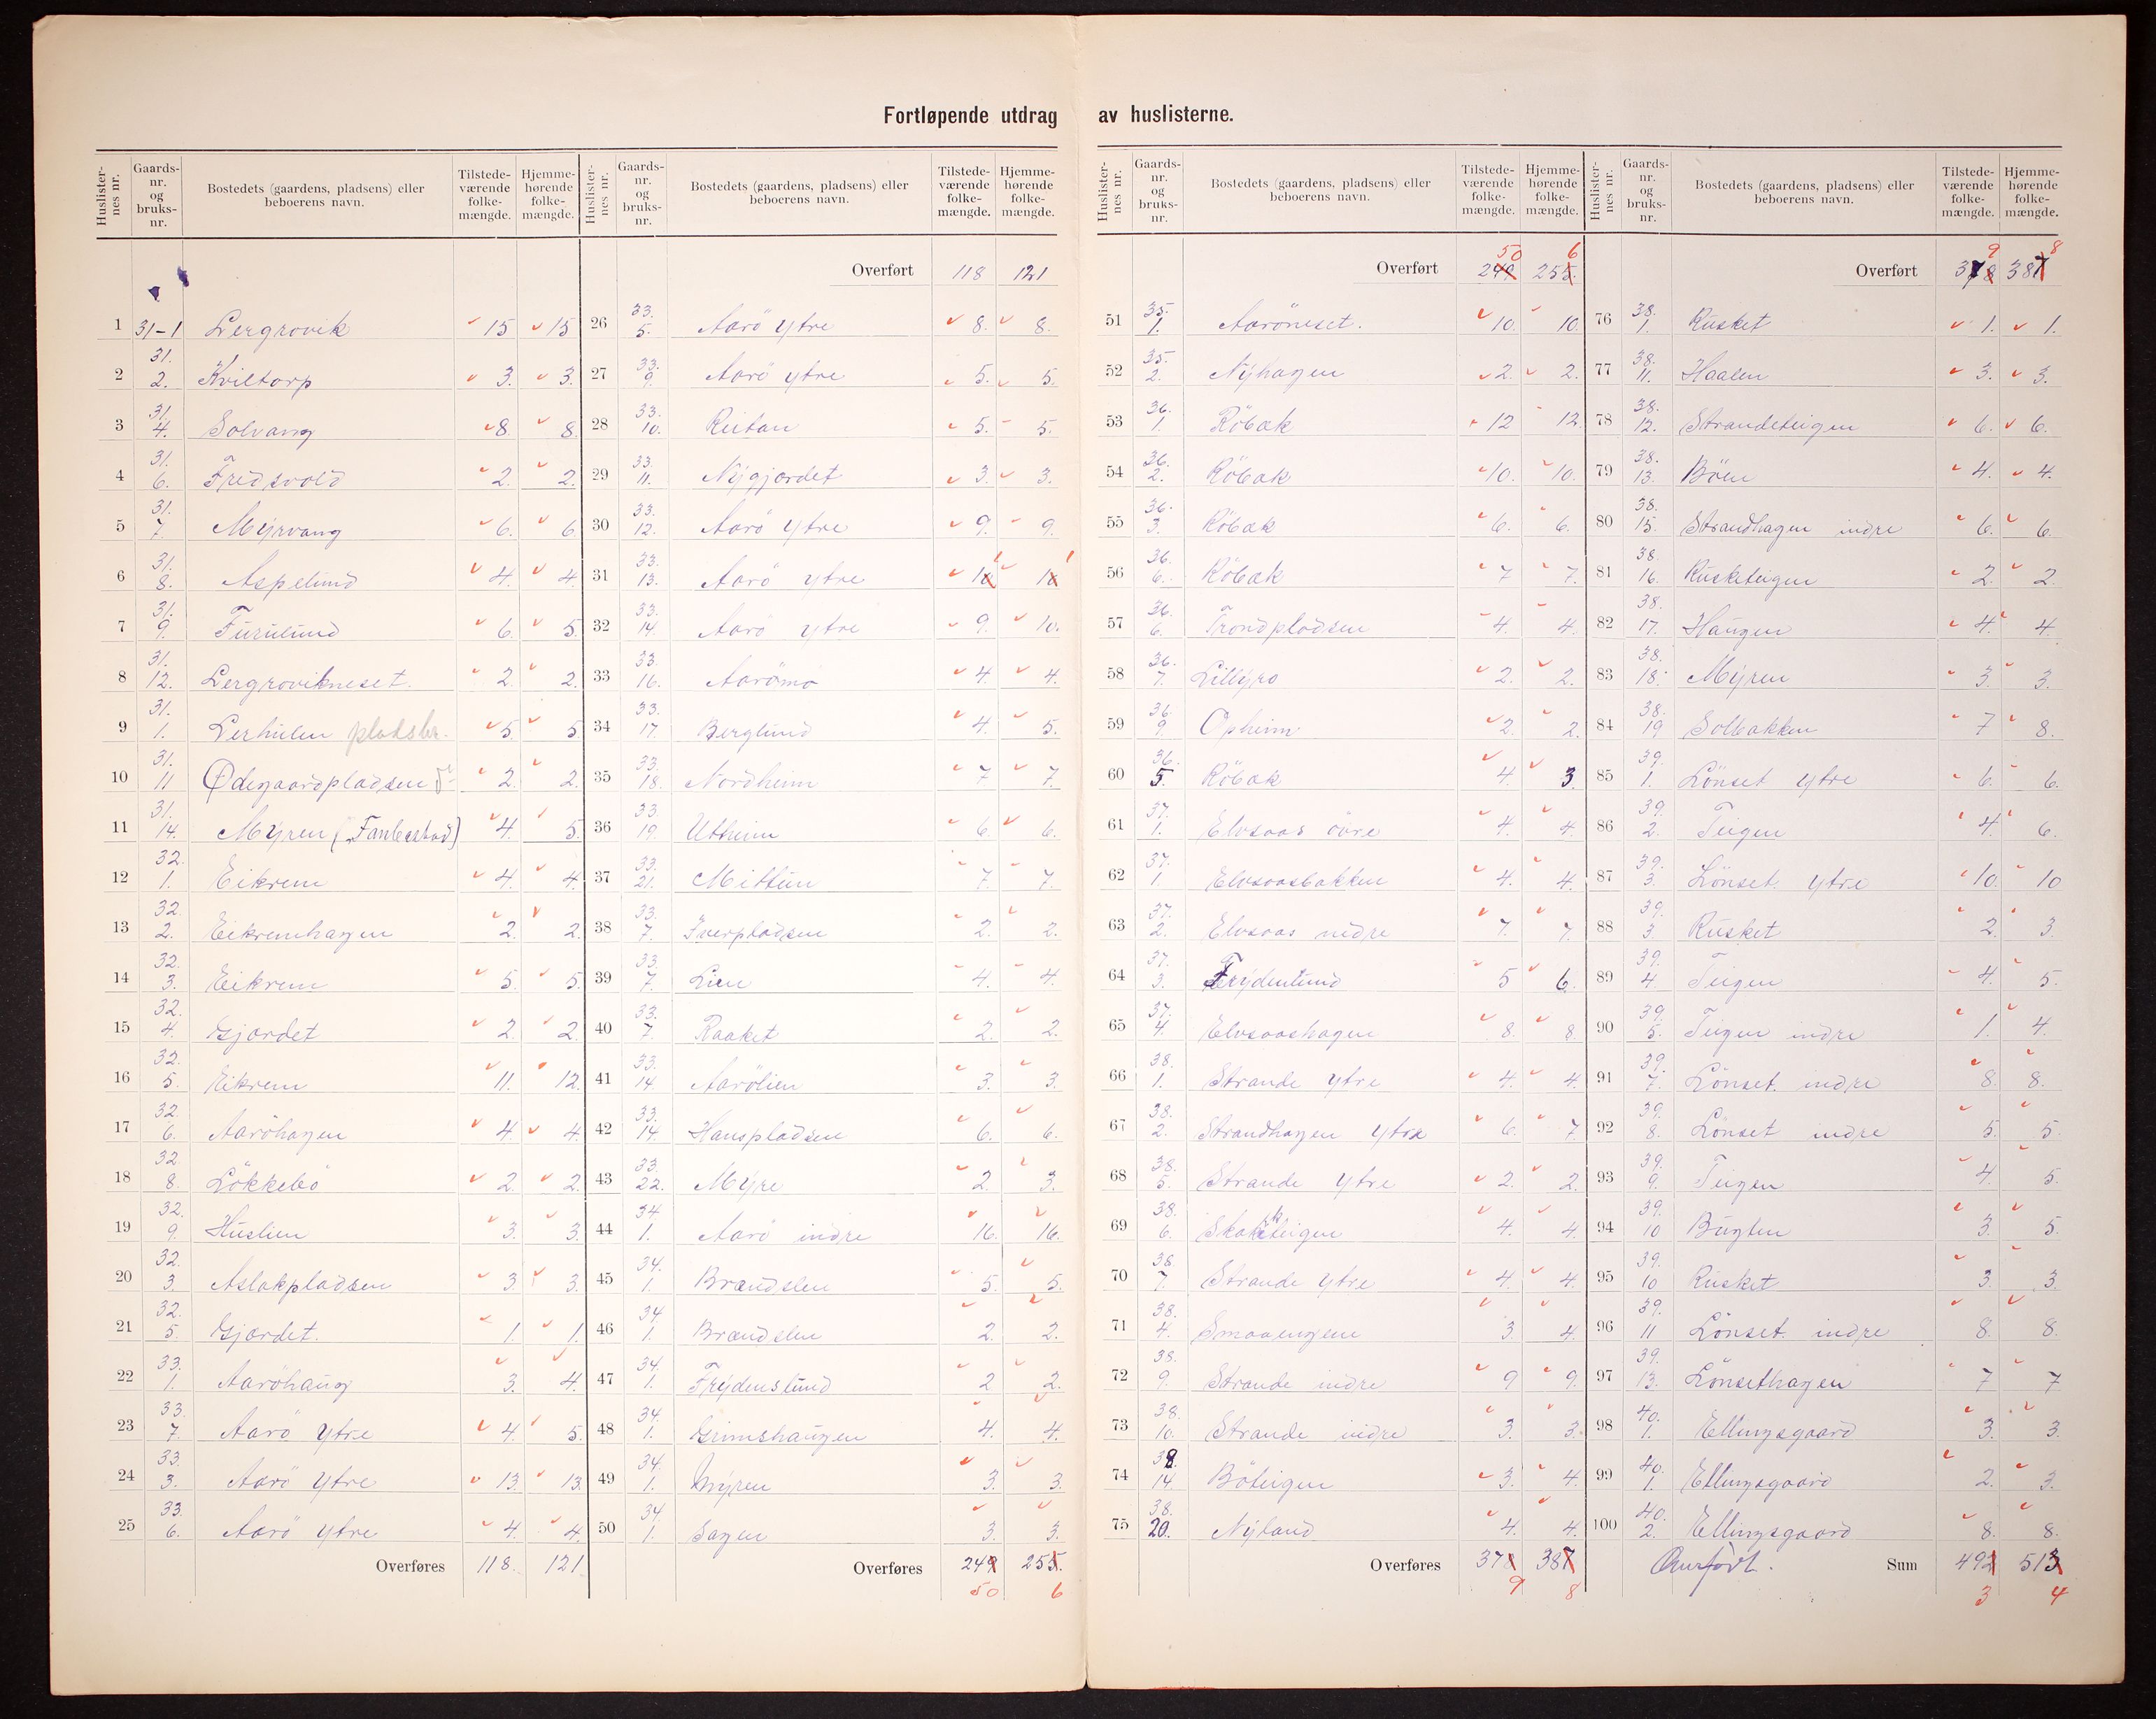 Fortløpende utdrag av huslisterne.
Huslisternes nr. Gaards-nr. og bruks-nr. Bostedets (gaardens, pladsens) eller beboerens navn. Tilstedeværende folkemængde. Hjemmehørende folkemængde.
1 31-1 Lergrovik 15 15
2 31. 2. Kviltorp 3. 3.
3 31. 4. Solvang 8. 8.
4 31. 6. Fredsvold 2. 2.
5 31. 7. Myrvang 6. 6.
6 31. 8. Aspelund 4. 4.
7 31. 9. Furulund 6. 5.
8 31. 12. Lergrovikneset. 2. 2.
9 31. 1. Lerhulen pladsbr. 5. 5
10 31. 11 Ødegaardpladsen 2. 2.
11 31. 14. Myren (Fanbestad) 4. 5.
12 32. 1. Eikrem 4. 4.
13 32. 2. Eikremhagen 2. 2.
14 32. 3. Eikrem 5. 5.
15 32. 4. Gjærdet 2. 2.
16 32. 5. Eikrem 11. 12.
17 32. 6. Aaröhagen 4. 4.
18 32. 8. Lökkebö 2. 2.
19 32. 9. Huslien 3. 3.
20 32. 3. Aslakpladsen 3. 3.
21 32. 5. Gjærdet. 1. 1.
22 33. 1. Aaröhaug 3. 4.
23 33. 7. Aarö Ytre 4. 5.
24 33. 3. Aarö Ytre 13. 13.
25 33. 6. Aarö Ytre 4. 4.
Overføres 118. 121.
Huslisternes nr. Gaards-nr. og bruks-nr. Bostedets (gaardens, pladsens) eller beboerens navn. Tilstedeværende folkemængde. Hjemmehørende folkemængde.
Overført 118 121
26 33. 5. Aarö Ytre 8. 8.
27 33. 9. Aarö Ytre 5. 5.
28 33. 10. Reitan 5. 5.
29 33. 11. Nygjærdet 3. 3.
30 33. 12. Aarö Ytre 9. 9.
31 33. 13. Aarö Ytre 10 1 10 1
32 33. 14. Aarö Ytre 9. 10.
33 33. 16. Aarömo 4. 4.
34 33. 17. Berglund 4. 5.
35 33. 18. Nordheim 7 7.
36 33. 19. Utheim 6. 6.
37 33. 21. Mittun 7. 7.
38 33. 7. Iverpladsen 2. 2.
39 33. 7. Lien 4. 4.
40 33. 7. Raaket 2. 2.
41 33. 14 Aarölien 3. 3.
42 33. 14. Hanspladsen 6. 6.
43 33. 22. Myre 2. 3.
44 34. 1. Aarö indre 16. 16.
45 34. 1. Brændslen 5. 5.
46 34. 1. Brændslen 2. 2.
47 34. 1. Frydenslund 2 2.
48 34. 1. Grimshaugen 4. 4.
49 34. 1. Myren 3. 3.
50 34. 1. Sagen 3. 3.
Overføres 249 255.
50 6
Huslisternes nr. Gaards-nr. og bruks-nr. Bostedets (gaardens, pladsens) eller beboerens navn. Tilstedeværende folkemængde. Hjemmehørende folkemængde.
50 6
Overført 249. 255.
51 35. 1. Aaröneset. 10. 10.
52 35. 2. Nyhagen 2. 2.
53 36. 1. Röbæk 12 12.
54 36. 2. Röbæk 10. 10.
55 36. 3. Röbæk 6. 6.
56 36. 6. Röbæk 7 7.
57 36. 6. Trondpladsen 4. 4.
58 36. 7. Lillyro 2. 2.
59 36. 9. Opheim 2. 2.
60 36. 5. Röbæk 4. 3.
61 37. 1. Elvsaas övre 4. 4.
62 37. 1 Elvsaasbakken 4. 4.
63 37. 2. Elvsaas nedre 7. 7.
64 37. 3. Frydenlund 5 6.
65 37. 4 Elvsaashagen 8. 8.
66 38. 1. Strande Ytre 4. 4.
67 38. 2. Strandhagen Ytre 6. 7.
68 38. 5. Strande Ytre 2. 2.
69 38. 6. Skakteigen 4. 4.
70 38. 7. Strande Ytre 4. 4.
71 38. 4. Smaaengene 3. 4.
72 38. 9. Strande indre 9 9.
73 38. 10. Strande indre 3. 3.
74 38. 14. Böteigen 3. 4.
75 38. 20. Nyland 4. 4.
Overføres 378 387
9 8
Huslisternes nr. Gaards-nr. og bruks-nr. Bostedets (gaardens, pladsens) eller beboerens navn. Tilstedeværende folkemængde. Hjemmehørende folkemængde.
9 8
Overført 378 387
76 38. 1. Rusket 1. 1.
77 38. 11. Haalen 3. 3.
78 38. 12. Strandeteigen 6. 6.
79 38. 13. Böen 4. 4.
80 38. 15. Strandhagen indre 6. 6.
81 38. 16. Rusketeigen 2. 2.
82 38. 17. Haugen 4. 4.
83 38. 18. Myren 3. 3.
84 38. 19 Solbakken 7 8.
85 39. 1. Lönset Ytre 6. 6.
86 39. 2. Teigen 4. 6.
87 39. 3. Lönset Ytre 10. 10
88 39. 3. Rusket 2. 3.
89 39. 4. Teigen 4. 5.
90 39. 5. Teigen indre 1. 4.
91 39. 7. Lönset. indre 8. 8.
92 39. 8. Lönset indre 5. 5.
93 39. 9. Teigen 4. 5.
94 39. 10 Bugten 3. 5.
95 39. 10 Rusket 3. 3.
96 39. 11 Lönset. indre 8. 8.
97 39. 13. Lönsethagen 7 7
98 40. 1. Ellingsgaard 3. 3.
99 40. 1. Ellingsgaard 2. 3.
100 40. 2. Ellingsgaard 8. 8.
Overført. Sum 492 513
3 4